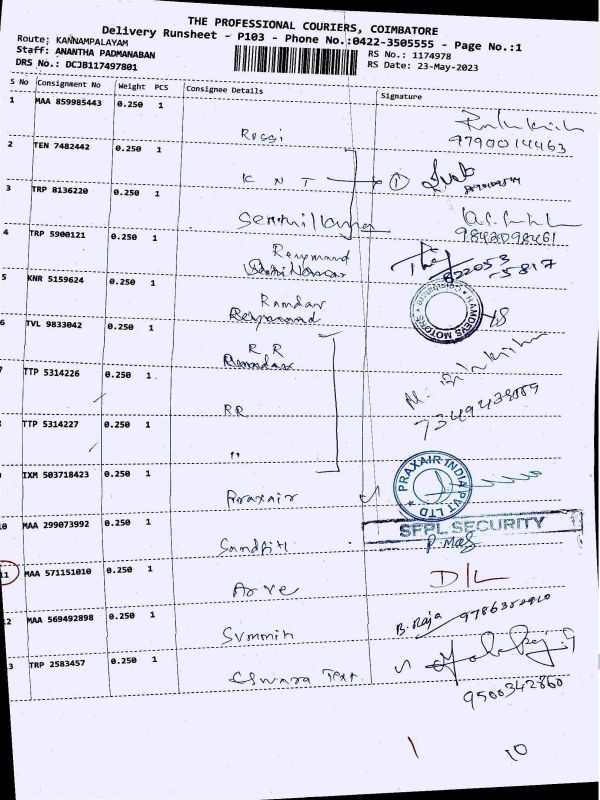 THE PROFESSIONAL COURIERS, COIMBATORE
Delivery Runsheet - P103 - Phone No.:0422-3505555 - Page No.:1
Route: KANNAMPALAYAM
Staff: ANANTHA PADMANABAN
DRS No.: DCJB117497801
RS No.: 1174978
RS Date: 23-May-2023
S No Consignment No Weight PCS Consignee Details Signature
1 MAA 859985443 0.250 1
Rossi
9790014463
2 TEN 7482442 0.250 1
K N T 1
3 TRP 8136220 0.250 1
9843098461
4 TRP 5900121 0.250 1
Raymond
5 KNR 5159624 0.250 1
Ramdav
RAMDEVS MOTORS
6 TVL 9833042 0.250 1
R R
7 TTP 5314226 0.250 1
RR
8 TTP 5314227 0.250 1
"
9 IXM 503718423 0.250 1
Praxair
PRAXAIR INDIA PVT LTD
10 MAA 299073992 0.250 1
SFPL SECURITY
11 MAA 571151010 0.250 1
Arve D/L
12 MAA 569492898 0.250 1
B. Raja
13 TRP 2583457 0.250 1
Eswara Text
9500342860
1 10